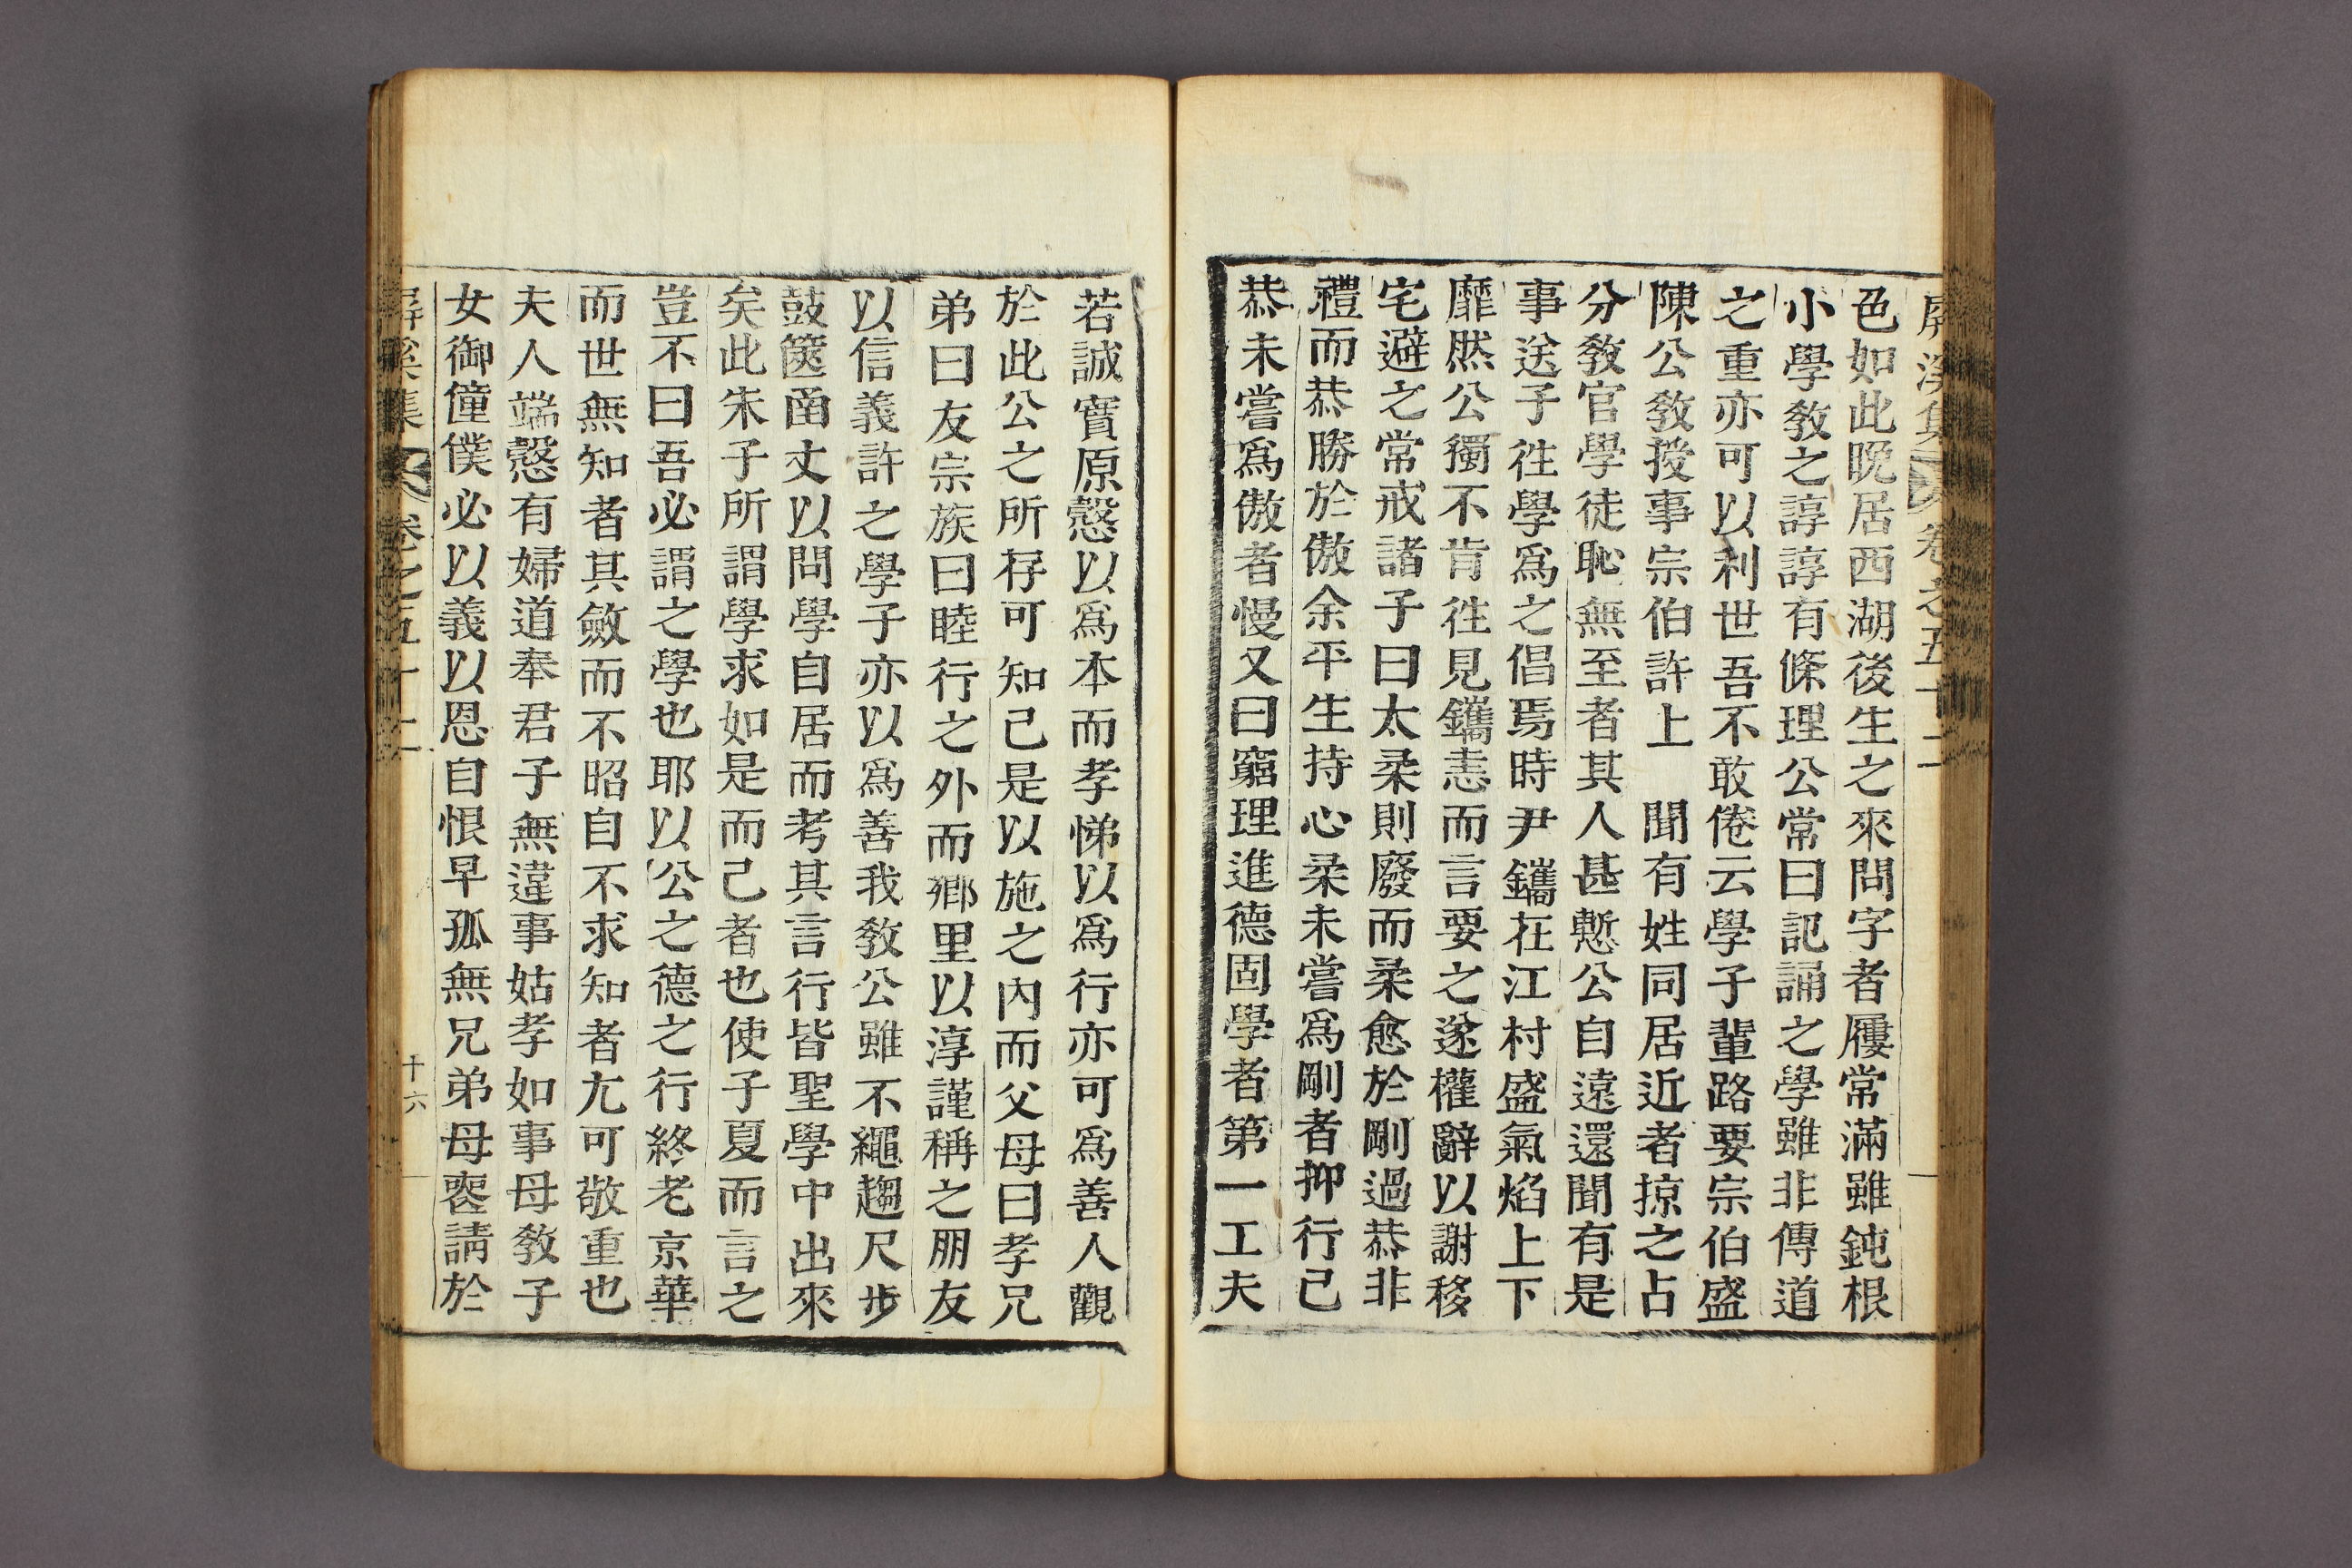 屛溪集 卷之五十二
色如此晩居西湖後生之來問字者屨常滿雖鈍根
小學敎之諄諄有條理公常曰記誦之學雖非傳道
之重亦可以利世吾不敢倦云學子輩路要宗伯盛
陳公敎授事宗伯許上　聞有姓同居近者掠之占
分敎官學徒恥無至者其人甚慙公自遠還聞有是
事送子徃學爲之倡焉時尹鑴在江村盛氣焰上下
靡然公獨不肯徃見鑴恚而言要之遂權辭以謝移
宅避之常戒諸子曰太柔則廢而柔愈於剛過恭非
禮而恭勝於傲余平生持心柔未嘗爲剛者抑行己
恭未嘗爲傲者慢又曰窮理進德固學者第一工夫
若誠實原慤以爲本而孝悌以爲行亦可爲善人觀
於此公之所存可知已是以施之內而父母曰孝兄
弟曰友宗族曰睦行之外而鄕里以淳謹稱之朋友
以信義許之學子亦以爲善我敎公雖不繩趨尺步
鼓篋函丈以問學自居而考其言行皆聖學中出來
矣此朱子所謂學求如是而已者也使子夏而言之
豈不曰吾必謂之學也耶以公之德之行終老京華
而世無知者其斂而不昭自不求知者尤可敬重也
夫人端慤有婦道奉君子無違事姑孝如事母敎子
女御僮僕必以義以恩自恨早孤無兄弟母喪請於
屛溪集 卷之五十二 十六